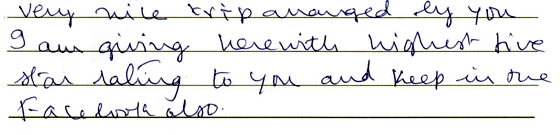 very nice trip arranged by you
I am giving herewith highest five
star rating to you and keep in the
Facebook also.